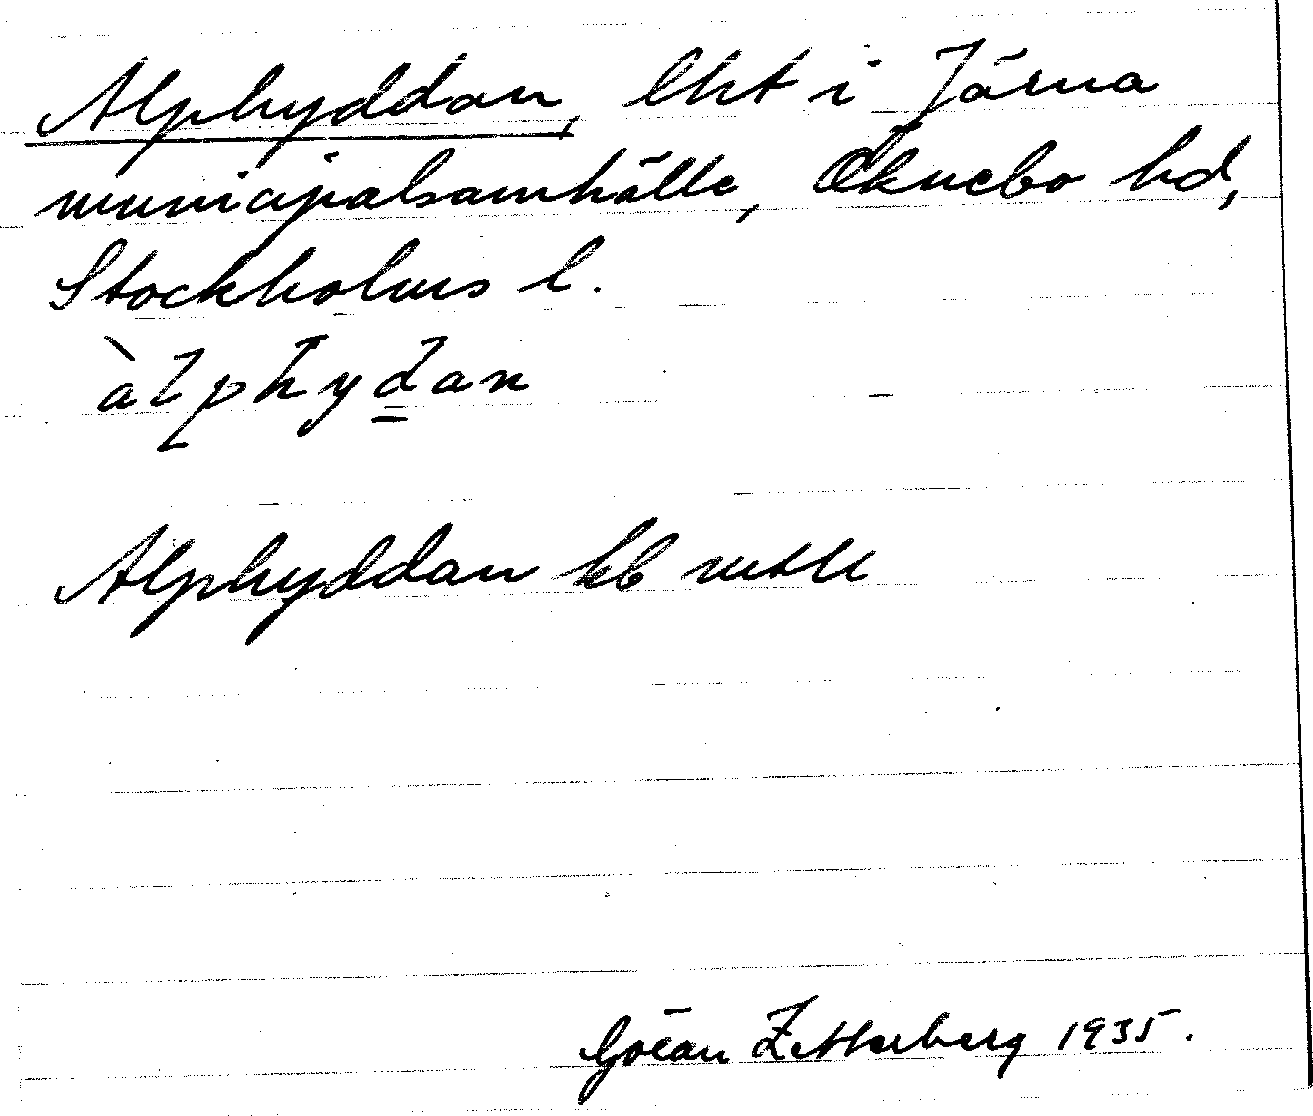 Alphyddan, lht i Järna
municipalsamhälle, Öknebo hd,
Stockholms l.
àlphydan
Alphyddan kb mtll
Göran Zetterberg 1935.